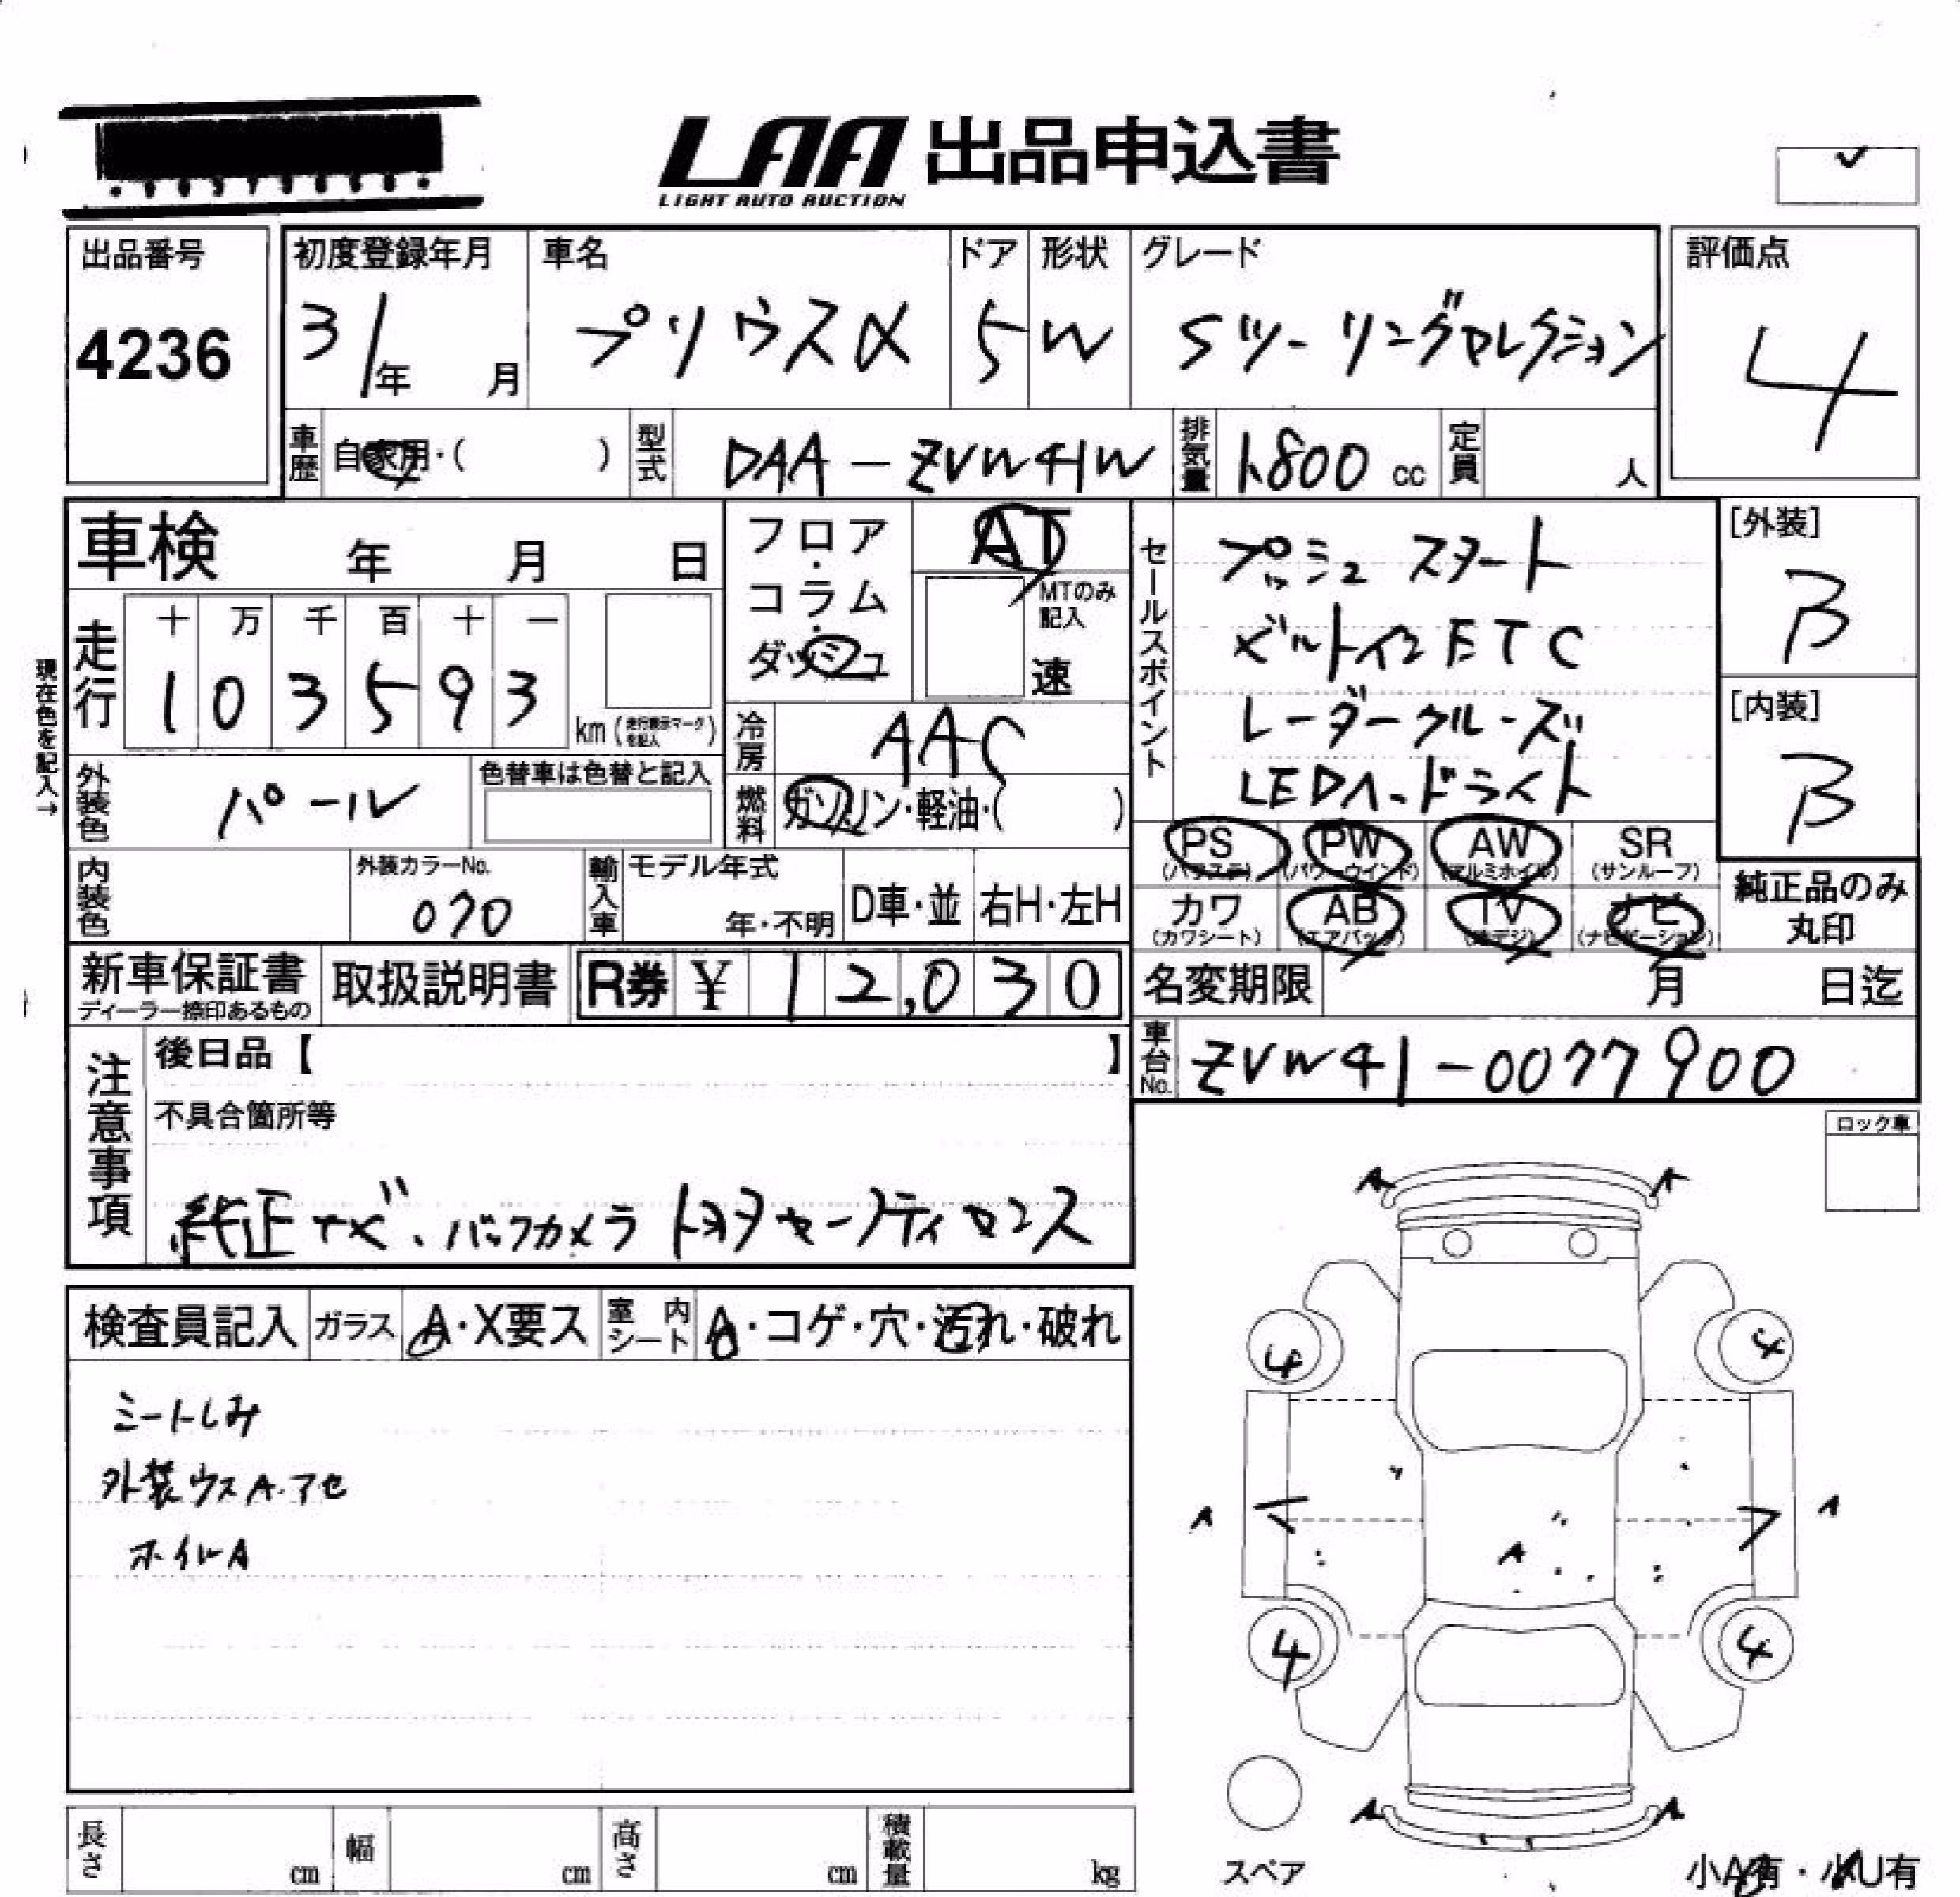 LAA 出品申込書
LIGHT AUTO AUCTION
出品番号
4236
初度登録年月
31年 月
車名
プリウスα
ドア
5
形状
W
グレード
Sツーリングセレクション
評価点
4
車歴
自家用・( )
型式
DAA-ZVW41W
排気量
1,800 cc
定員
人
車検 年 月 日
フロア・コラム・ダッシュ
AT
MTのみ記入
速
セールスポイント
プッシュスタート
ビルトインETC
レーダークルーズ
LEDヘッドライト
[外装]
B
[内装]
B
現在色を記入→
走行
十 万 千 百 十 一
1 0 3 5 9 3
km (走行表示マークを記入)
冷房
AAC
外装色
パール
色替車は色替と記入
燃料
ガソリン・軽油・( )
PS (パワステ) PW (パワーウインド) AW (アルミホイル) SR (サンルーフ)
カワ (カワシート) AB (エアバック) TV (地デジ) ナビ (ナビゲーション)
純正品のみ丸印
内装色
外装カラーNo.
070
輸入車
モデル年式
年・不明
D車・並
右H・左H
新車保証書
ディーラー捺印あるもの
取扱説明書
R券 ¥ 12,030
名変期限 月 日迄
車台No.
ZVW41-0077900
注意事項
後日品【 】
不具合箇所等
純正ナビ、バックカメラ トヨタセーフティセンス
ロック車
検査員記入
ガラス
A・X要ス
室内シート
A・コゲ・穴・汚れ・破れ
シートしみ
外装ウスA.アセ
ホイルA
A A
4 4
A A
A
4 4
A A
スペア
小A有・小U有
長さ cm
幅 cm
高さ cm
積載量 kg